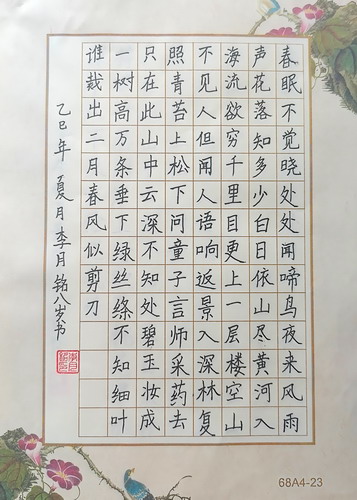 春眠不觉晓处处闻啼鸟夜来风雨
声花落知多少白日依山尽黄河入
海流欲穷千里目更上一层楼空山
不见人但闻人语响返景入深林复
照青苔上松下问童子言师采药去
只在此山中云深不知处碧玉妆成
一树高万条垂下绿丝绦不知细叶
谁裁出二月春风似剪刀
乙巳年 夏月李月铭八岁书
68A4-23